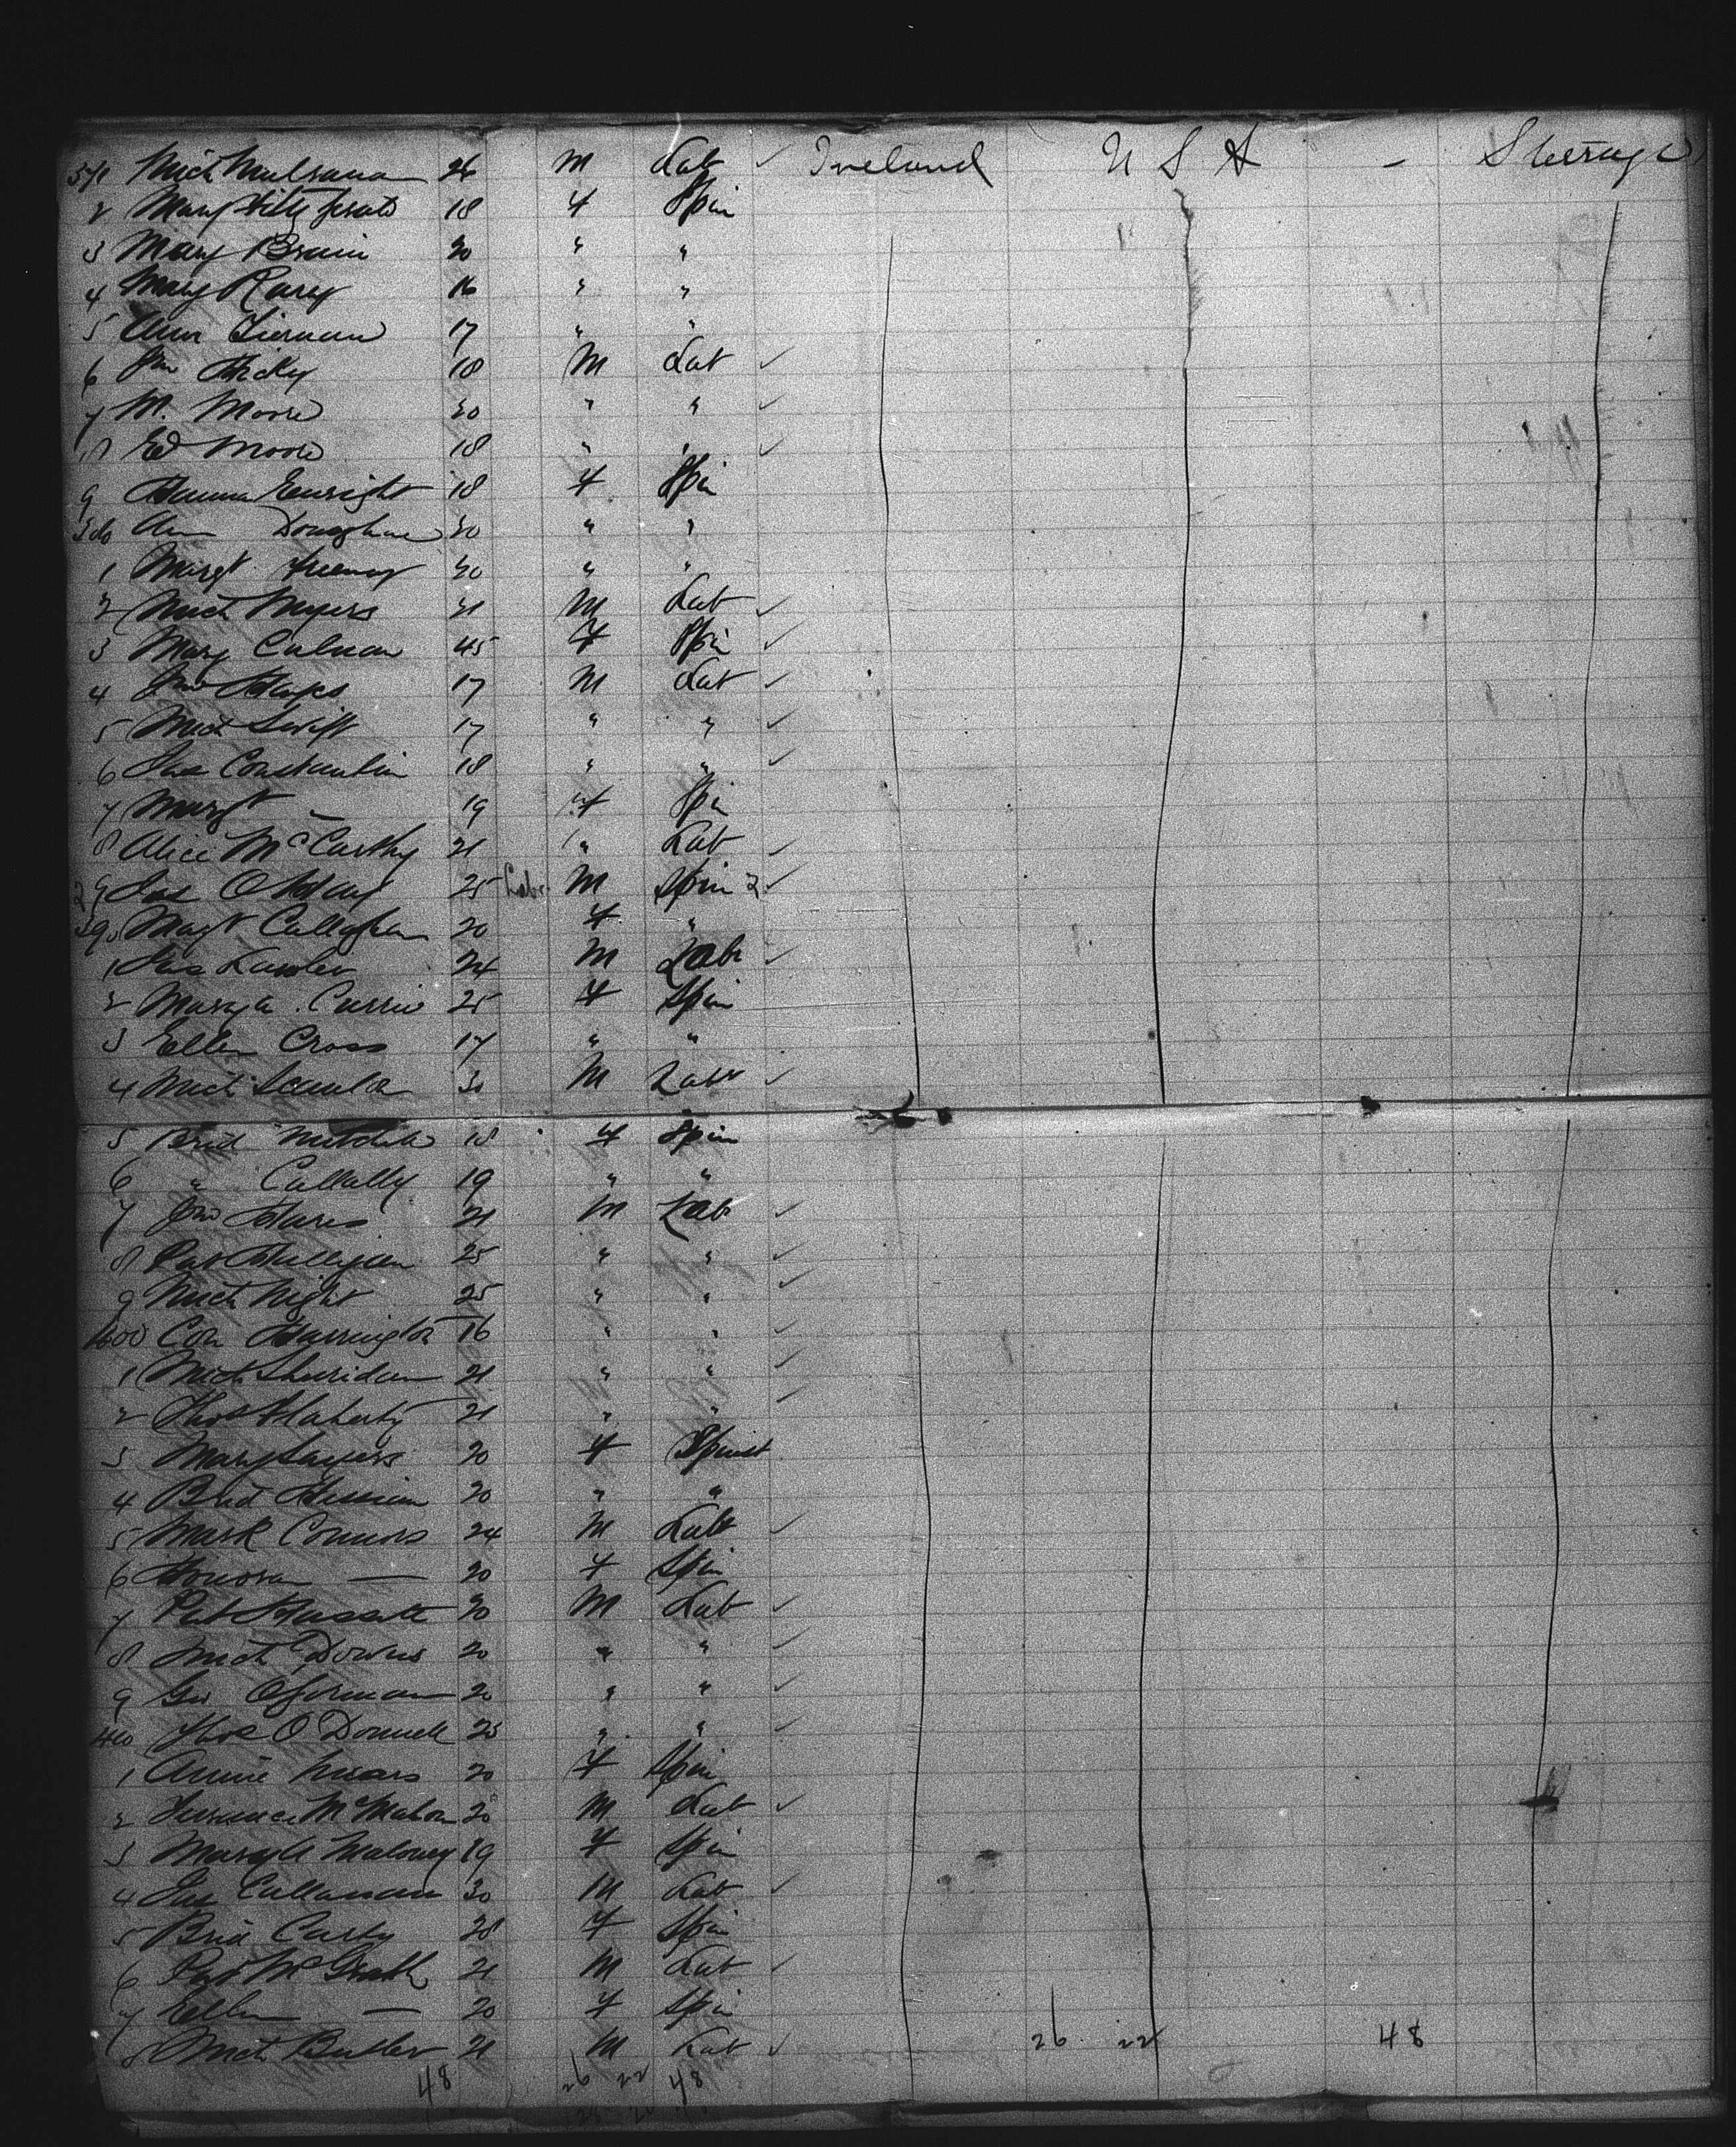 371 Mich Mulrana 26 M Lab ✓ Ireland U S A - Steerage
2 Mary Fitzgerald 18 F Spin
3 Mary Brain 20 " "
4 Mary 16 " "
5 Ann Tiernan 17 " "
6 Jno Hickey 18 M Lab ✓
7 M. Moore 20 " " ✓
8 Ed Moore 18 " " ✓
9 Hanna Enright 18 F Spin
380 Ann Donoghue 30 " "
1 Margt 20 " "
2 Mich Meyers 21 M Lab ✓
3 Mary 45 F Spin ✓
4 Jno Hayes 17 M Lab ✓
5 Mich Swift 17 " " ✓
6 Jas Constantin 18 " " ✓
7 Margt — 19 F Spin
8 Alice McCarthy 21 " Lab ✓
9 Jas 25 Labr M Spin 2 ✓
390 Magt Callaghan 20 F "
1 Jas Lawler 24 M Labr ✓
2 Mary A. Currie 25 F Spin
3 Ellen Cross 17 " "
4 Mich Scanlon 30 M Labr ✓
5 Brid Mitchell 18 F Spin
6 " Callally 19 " "
7 Jno 21 M Lab ✓
8 Pat 25 " " ✓
9 Mich Night 25 " " ✓
400 Con Harrington 16 " " ✓
1 Mich Sheridan 21 " " ✓
2 Thos Flaherty 21 " " ✓
3 Mary Sayers 20 F Spinst
4 Brid 20 " "
5 Mark Connors 24 M Labr ✓
6 Honora — 20 F Spin
7 Pat 20 M Lab ✓
8 Mich Downs 20 " " ✓
9 Geo OGorman 20 " " ✓
410 Thos O'Donnell 25 " " ✓
1 Annie Mears 20 F Spin
2 Terrence McMahon 20 M Lab ✓
3 Mary A Maloney 19 F Spin
4 Jas Callanan 30 M Lab ✓
5 Brid 20 F Spin
6 Pat McGrath 21 M Lab ✓
7 Ellen — 20 F Spin
8 Mich Butler 21 M Lab ✓ 26 22 48
48 26 22 48